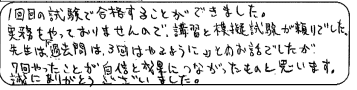 1回目の試験で合格することができました。
実務をやっておりませんので、講習と模擬試験が頼りでした。
先生は「過去問は、3回はやるように」とのお話でしたが
7回やったことが自信と結果につながったものと思います。
誠にありがとうございました。